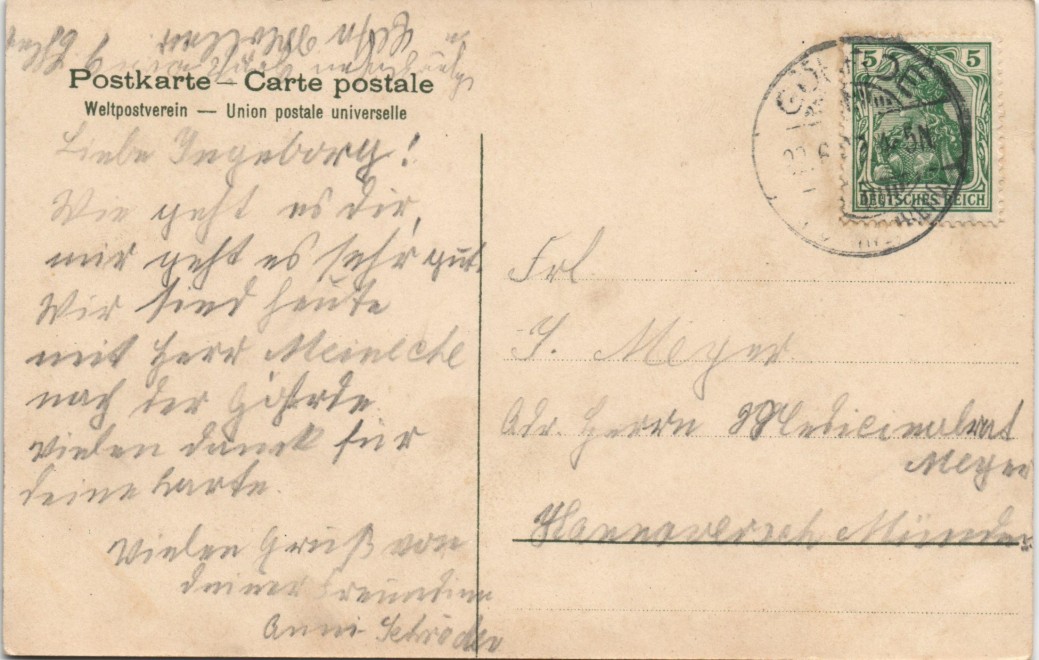 Postkarte – Carte postale
Weltpostverein — Union postale universelle
Liebe Ingeborg!
Wie geht es dir,
mir geht es sehr gut.
Wir sind heute
mit Herr Meinecke
nach der Göhrde.
vielen danck für
deine Karte.
Vielen Gruß von
deiner Freundinn
Anni Schröder
5 5
DEUTSCHES REICH
GÖHRDE
Frl
I. Meyer
Adr. Herrn Medicinalrat
Meyer
Hannoversch Münden